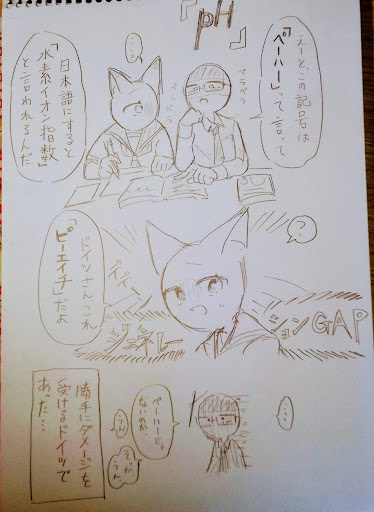 『pH』
えーと、この記号は
「ペーハー」って言って
ペラペラ
……
日本語にすると
「水素イオン指数」
と言われるんだ
?
ドイツさんこれ
「ピーエイチ」だよ
ジェネレー
ションGAP
……
ペーハーじゃ
ないのか、
うん
そか
うん
勝手にダメージを
受けるドイツで
あった…